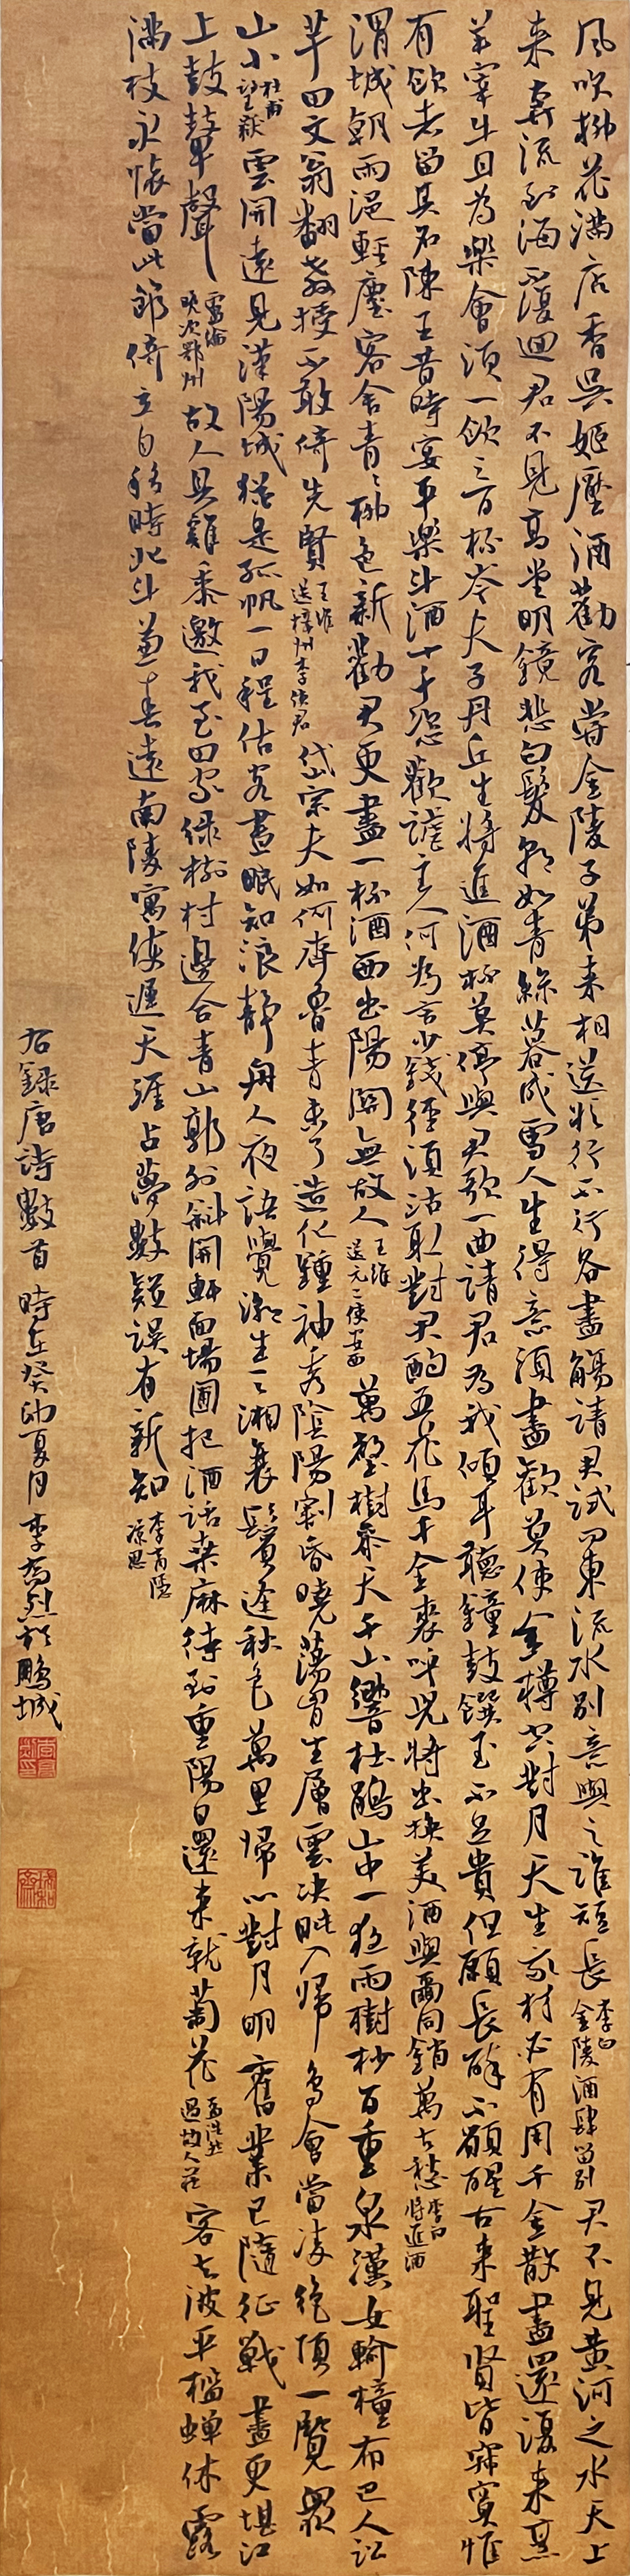 風吹柳花滿店香吳姬壓酒勸客嘗金陵子弟來相送欲行不行各盡觴請君試問東流水別意與之誰短長李白金陵酒肆留別君不見黃河之水天上
来奔流到海不復迴君不見高堂明鏡悲白髮朝如青絲暮成雪人生得意須盡歡莫使金樽空對月天生我材必有用千金散盡還復来烹
羊宰牛且為樂會須一飲三百杯岑夫子丹丘生將進酒杯莫停與君歌一曲請君為我傾耳聽鐘鼓饌玉不足貴但願長醉不願醒古来聖賢皆寂寞惟
有飲者留其名陳王昔時宴平樂斗酒十千恣歡謔主人何為言少錢徑須沽取對君酌五花馬千金裘呼兒將出換美酒與爾同銷萬古愁李白將進酒
渭城朝雨浥輕塵客舍青〻柳色新勸君更盡一杯酒西出陽關無故人王維送元二使安西萬壑樹參天千山響杜鵑山中一夜雨樹杪百重泉漢女輸橦布巴人訟
芋田文翁翻教授不敢倚先賢王維送梓州李使君岱宗夫如何齊魯青未了造化鍾神秀陰陽割昏曉蕩胷生層雲決眥入歸鳥會當凌絕頂一覽眾
山小杜甫望嶽雲開遠見漢陽城猶是孤帆一日程估客晝眠知浪靜舟人夜語覺潮生三湘衰鬢逢秋色萬里歸心對月明舊業已隨征戰盡更堪江
上鼓鼙聲盧綸晚次鄂州故人具雞黍邀我至田家綠樹村邊合青山郭外斜開軒面場圃把酒話桑麻待到重陽日還来就菊花孟浩然過故人莊客去波平檻蟬休露
滿枝永懷當此節倚立自移時北斗兼春遠南陵寓使遲天涯占夢數疑誤有新知李商隱涼思
右錄唐詩數首時在癸卯夏月李喬烈於鵬城